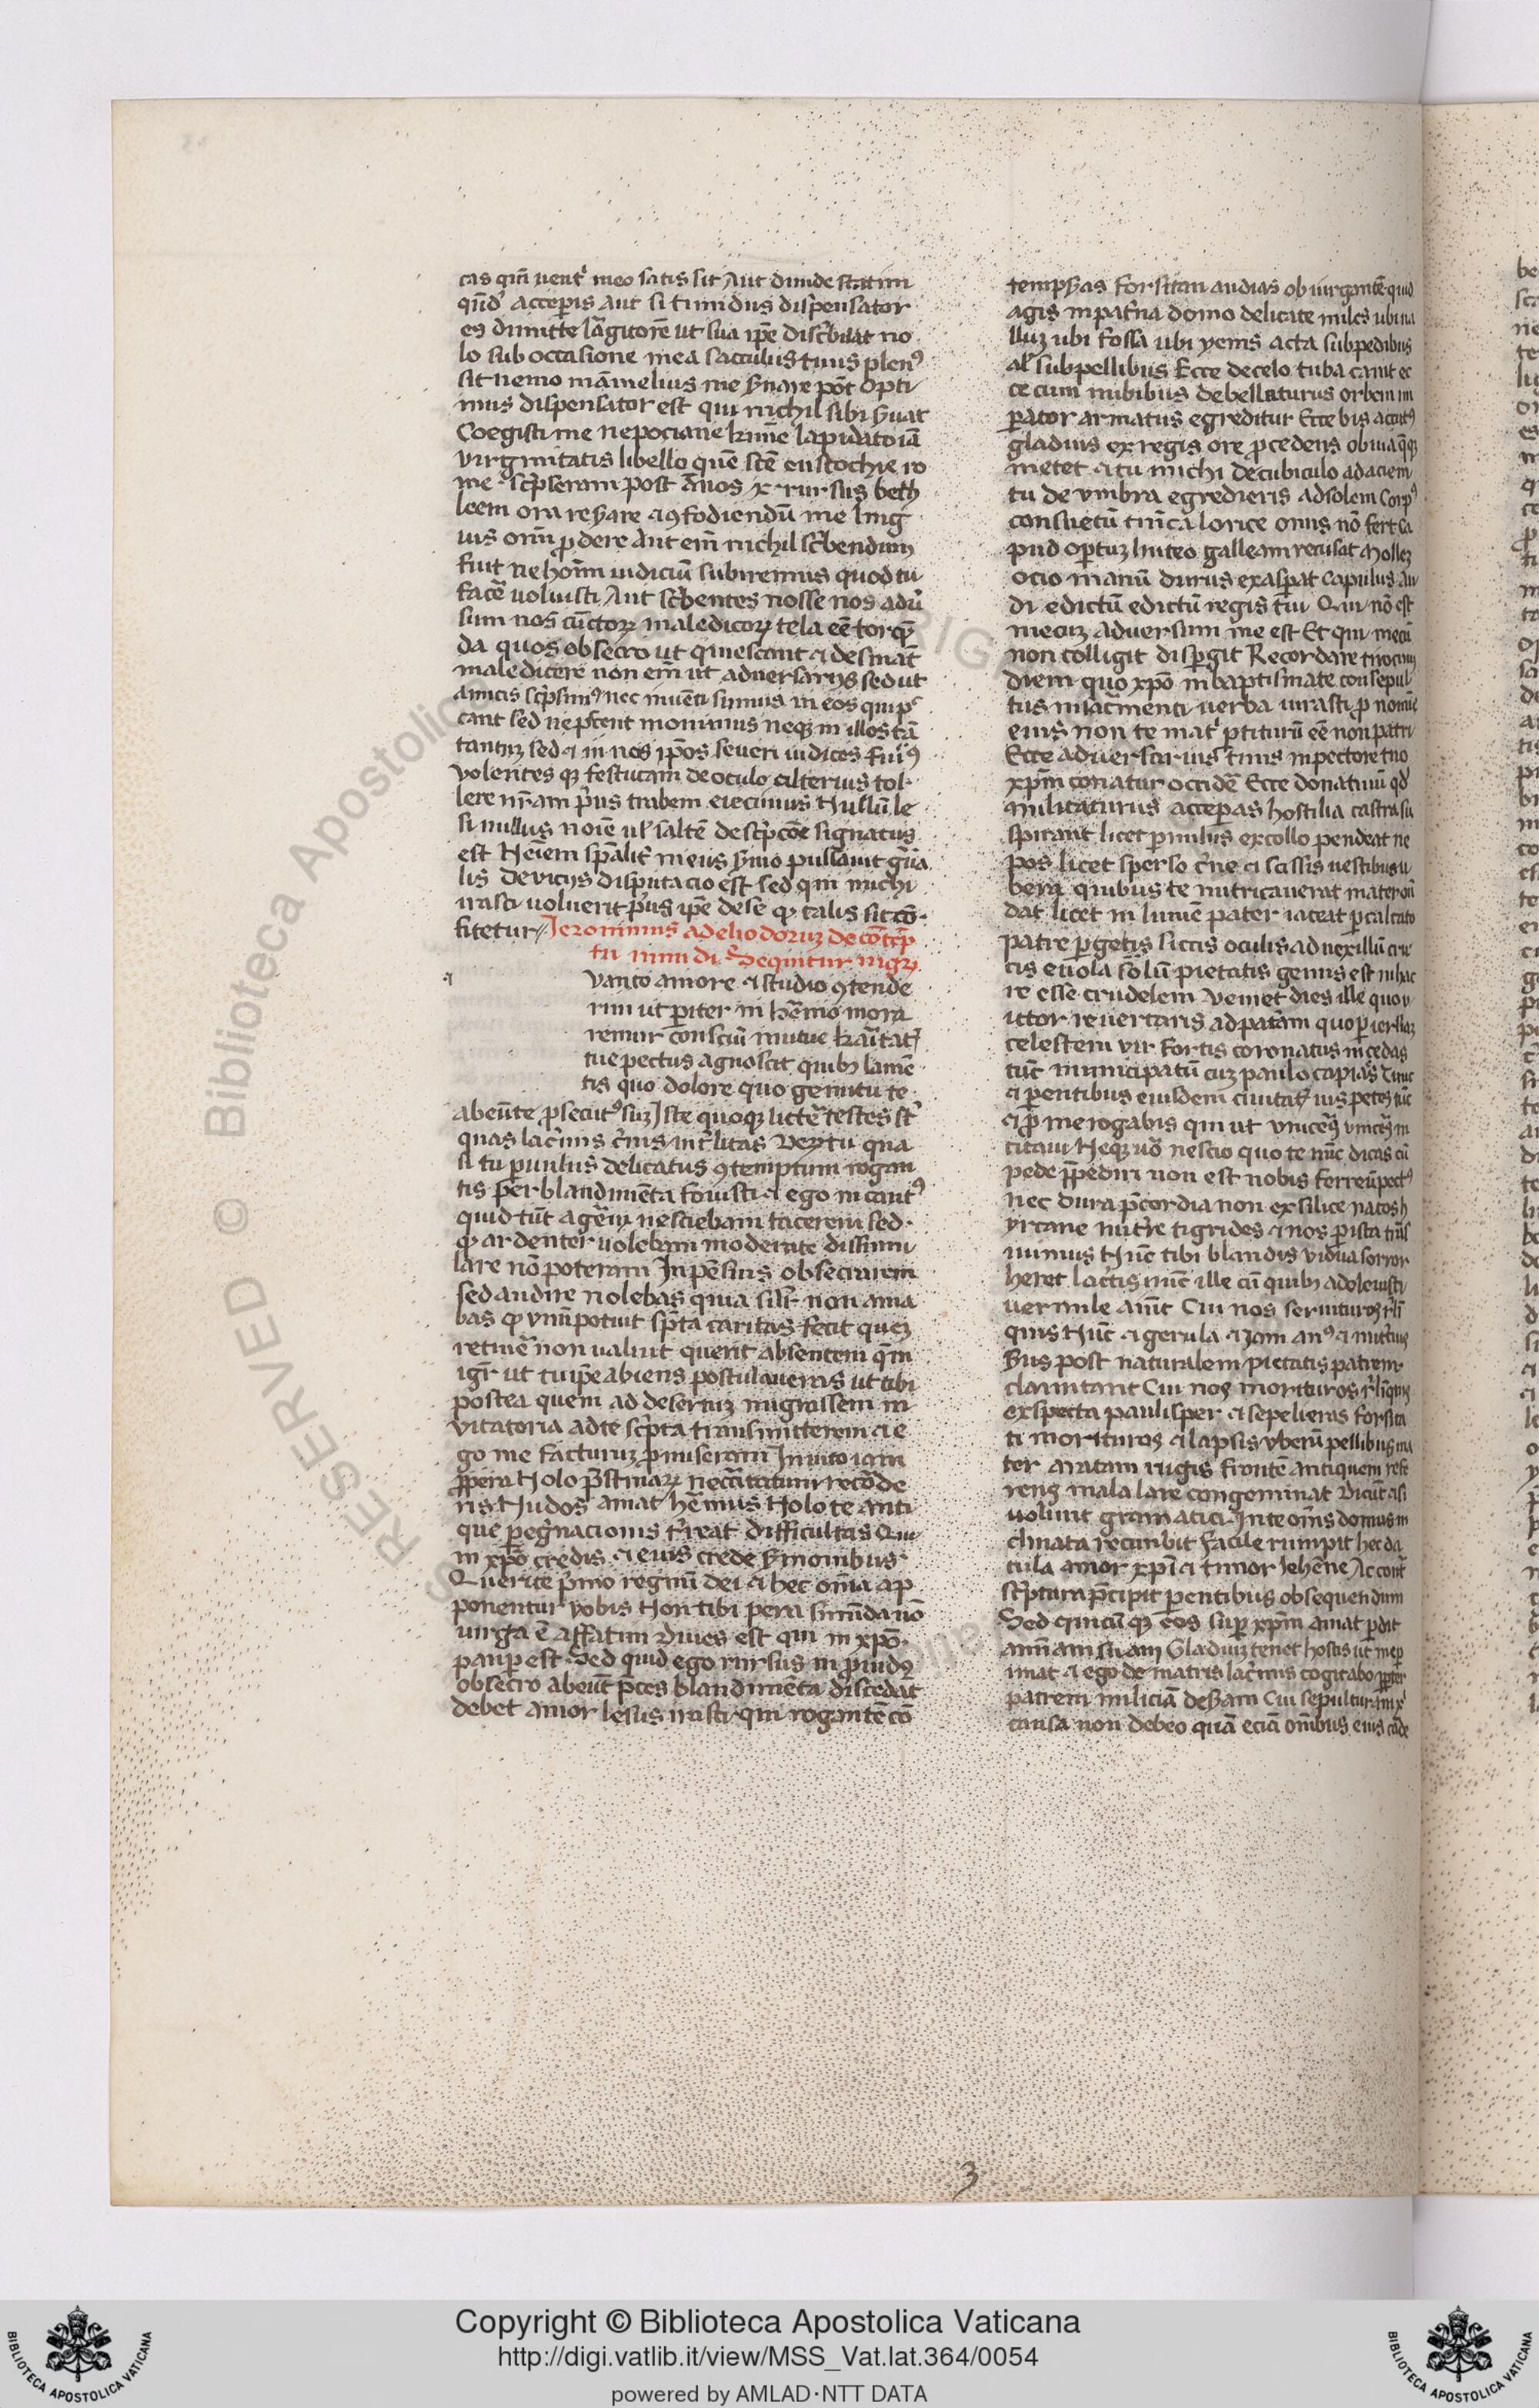 cas qm̄ uentͥ meo satis sit Aut diuide statim
qn̄dꝰ acceperis aut si timidus dispensator
es dimitte lāgitorē ut sua ip̄e distbuat no
lo sub occasione mea sacculus tuus plenꝰ
sit nemo mā melius me suare pōt Opti
mus dispensator est qui nichil sibi suat
Coegisti me nepociane kīme lapidato iā
virginitatis libello quē stē eustochie ro
me scpseram post ānos x rursus beth
leem ora reserare ꝯfodiendū me ling
uis om̄ ꝓdere aut em̄ nichil sc̄bendum
fuit ne hom̄ iudiciū subiremus quod tu
facē uoluisti Aut sc̄bentes nosse nos adū
sum nos cūctoꝝ maledicoꝝ tela eē torqꝫ
da quos obsecro ut quiescant ⁊ desināt
maledicere non em̄ ut aduersarijs sed ut
amicis scp̄simꝰ nec inuēti sumus in eos qui pc
cant sed ne peccent monimus neqꝫ in illos tā
tantuꝫ sed ⁊ in nos ip̄os seueri iudices fuimꝰ
volentes qꝫ festucam de oculo alterius tol
lere nr̄am p̄us trabem eiecimus Nullū le
si nullus noīe ul̓ saltē desc̄pcōe signatus
est Neīem sp̄alit̓ meus s̓mo pulsauit gn̄a
lis de vicijs disputacio est sed qui michi
irasci uoluerit p̄us ip̄e de se qꝫ talis sit cō
fitetur Ieronimus ad eliodoruꝫ de cōtēp
tu mundi Sequitur nigꝝ
q
vanto amore ⁊ studio ꝯtende
rim ut pariter in hēmo mora
remur conscīu mutue kāitatꝭ
tue pectus agnoscit quibꝫ lamē
tis quo dolore quo gemitu te
abeūte ꝓsecutꝰ suꝫ Iste quoqꝫ lictē testes st̄
quas lac̄mis c̄nis int̄litas Veꝝ tu qua
si tu puulus delicatus ꝯtemptum rogan
tis per blandimēta fouisti ⁊ ego incautꝰ
quid tūc agēm nesciebam tacerem sed
qꝫ ardenter uolebam moderate dissimu
lare nō poteram Inpēsius obsecrarem
sed audire nolebas quia sil̓r non ama
bas qꝫ vnū potuit sp̄ta caritas fecit queꝫ
retinē non valuit querit absentem qm̄
igr̄ ut tu ip̄e abiens postulaueras ut tibi
postea quem ad desertuꝫ migrassem in
vitatoria ad te sc̄pta transmitterem ⁊ e
go me facturuꝫ ꝓmiseram Inuito iam
ꝓpera Nolo p̄stinaꝝ necc̄itatum recōde
ris Nudos amat hēmus Nolo te anti
que peg̓nacionis t̄reat difficultas Qui
in xp̄o credis ⁊ eius crede s̓monibus
Querite p̄mo regnū dei ⁊ hec om̄ia ap
ponentur vobis Non tibi pera sumēda nō
uirga ē affatim diues est qui in xp̄o
paup est Sed quid ego rursus inprouidꝰ
obsecro abeūt p̄ces blandimēta discedāt
debet amor lesus irasci qui rogantē cō
tempseras forsitan audias obiurgantē quid
agis in pat̓na domo delicate miles ubi ua
lluꝫ ubi fossa ubi yems acta sub pedibus
al̓ sub pellibus Ecce de celo tuba canit ec
ce cum nubibus debellaturus orbem im
pator armatus egreditur Ecce bis acutꝰ
gladius ex regis ore ꝓcedens obuia q̄qꝫ
metet ⁊ tu michi de cubiculo ad aciem
tu de vmbra egredieris ad solem Corpꝰ
consuetū tuīca lorice onus nō fert ca
pud optuꝫ linteo galleam recusat Molleꝫ
ocio manū durus exaspat capulus Au
di edictū edictū regis tui Qui nō est
mecuꝫ aduersum me est Et qui mecū
non colligit dispgit Recordare tirocinij
diem quo xp̄o in baptismate consepul
tus in sac̄menti uerba iurasti ꝓ nomīe
eius non te matͥ ꝑciturū eē non patri
Ecce aduersarius tuus in pectore tuo
xp̄m conatur occidē Ecce donatiuū qd̄
militaturus acceperas hostilia castra su
spirant licet puulus ex collo pendeat ne
pos licet sperso c̄ne ⁊ scissis uestibus u
bera quibus te nutricauerat mater on̄
dat licet in limīe pater iaceat ꝑ calcato
patre ꝑge siccis oculis ad uexillū cru
cis euola solū pietatis genus est in hac
re esse crudelem Veniet dies ille quo v
ictor reuertaris ad patriam quo per ierlm̄
celestem vir fortis coronatus incedas
tūc municipatū cuꝫ paulo capias Tunc
⁊ parentibus eiusdem ciuitatꝭ ius petes tūc
⁊ ꝓ me rogabis qui ut vinceres
citaui Neqꝫ uō nescio quo te nūc dicas cū
pede p̄pediri non est nobis ferreū pectꝰ
nec dura p̄cordia non ex silice natos h
yrcane nutrīe tigrides ⁊ nos per ista trans
iuimus Nūc tibi blandis vidua soror
heret lactis nūc ille cū quibꝫ adoleuisti
uernule aiūt Cui nos seruituros relī
quis Nūc ⁊ gerula ⁊ iam anꝰ ⁊ nutriciꝰ
sus post naturalem pietatis patrem
clamitant Cui nos morituros relīquis
exspecta paulisper ⁊ sepelieras forsita
ti morituros ⁊ lapsis vberū pellibus ma
ter aratam rugis frontē antiquem refe
rens mala lare congeminat Dicūt ⁊ si
uolunt gramatici In te om̄s domus in
clinata recumbit Facile rumpit hec da
cula amor xp̄i ⁊ timor iehēne Ac cont̓
sc̄ptura p̄cipit parentibus obsequendum
Sed quicūqꝫ eos sup xp̄m amat pdit
amīam suam Gladiuꝫ tenet hostis ut me p
imat ⁊ ego de matris lac̄mis cogitabo ꝓpter
patrem miliciā deseram Cui sepulturam xͥ
causa non debeo quā eciā om̄ibus eius cāde
3
RESERVED © Biblioteca Apostolica
Copyright © Biblioteca Apostolica Vaticana
http://digi.vatlib.it/view/MSS_Vat.lat.364/0054
powered by AMLAD·NTT DATA
BIBLIOTECA APOSTOLICA VATICANA
BIBLIOTECA APOSTOLICA VATICANA